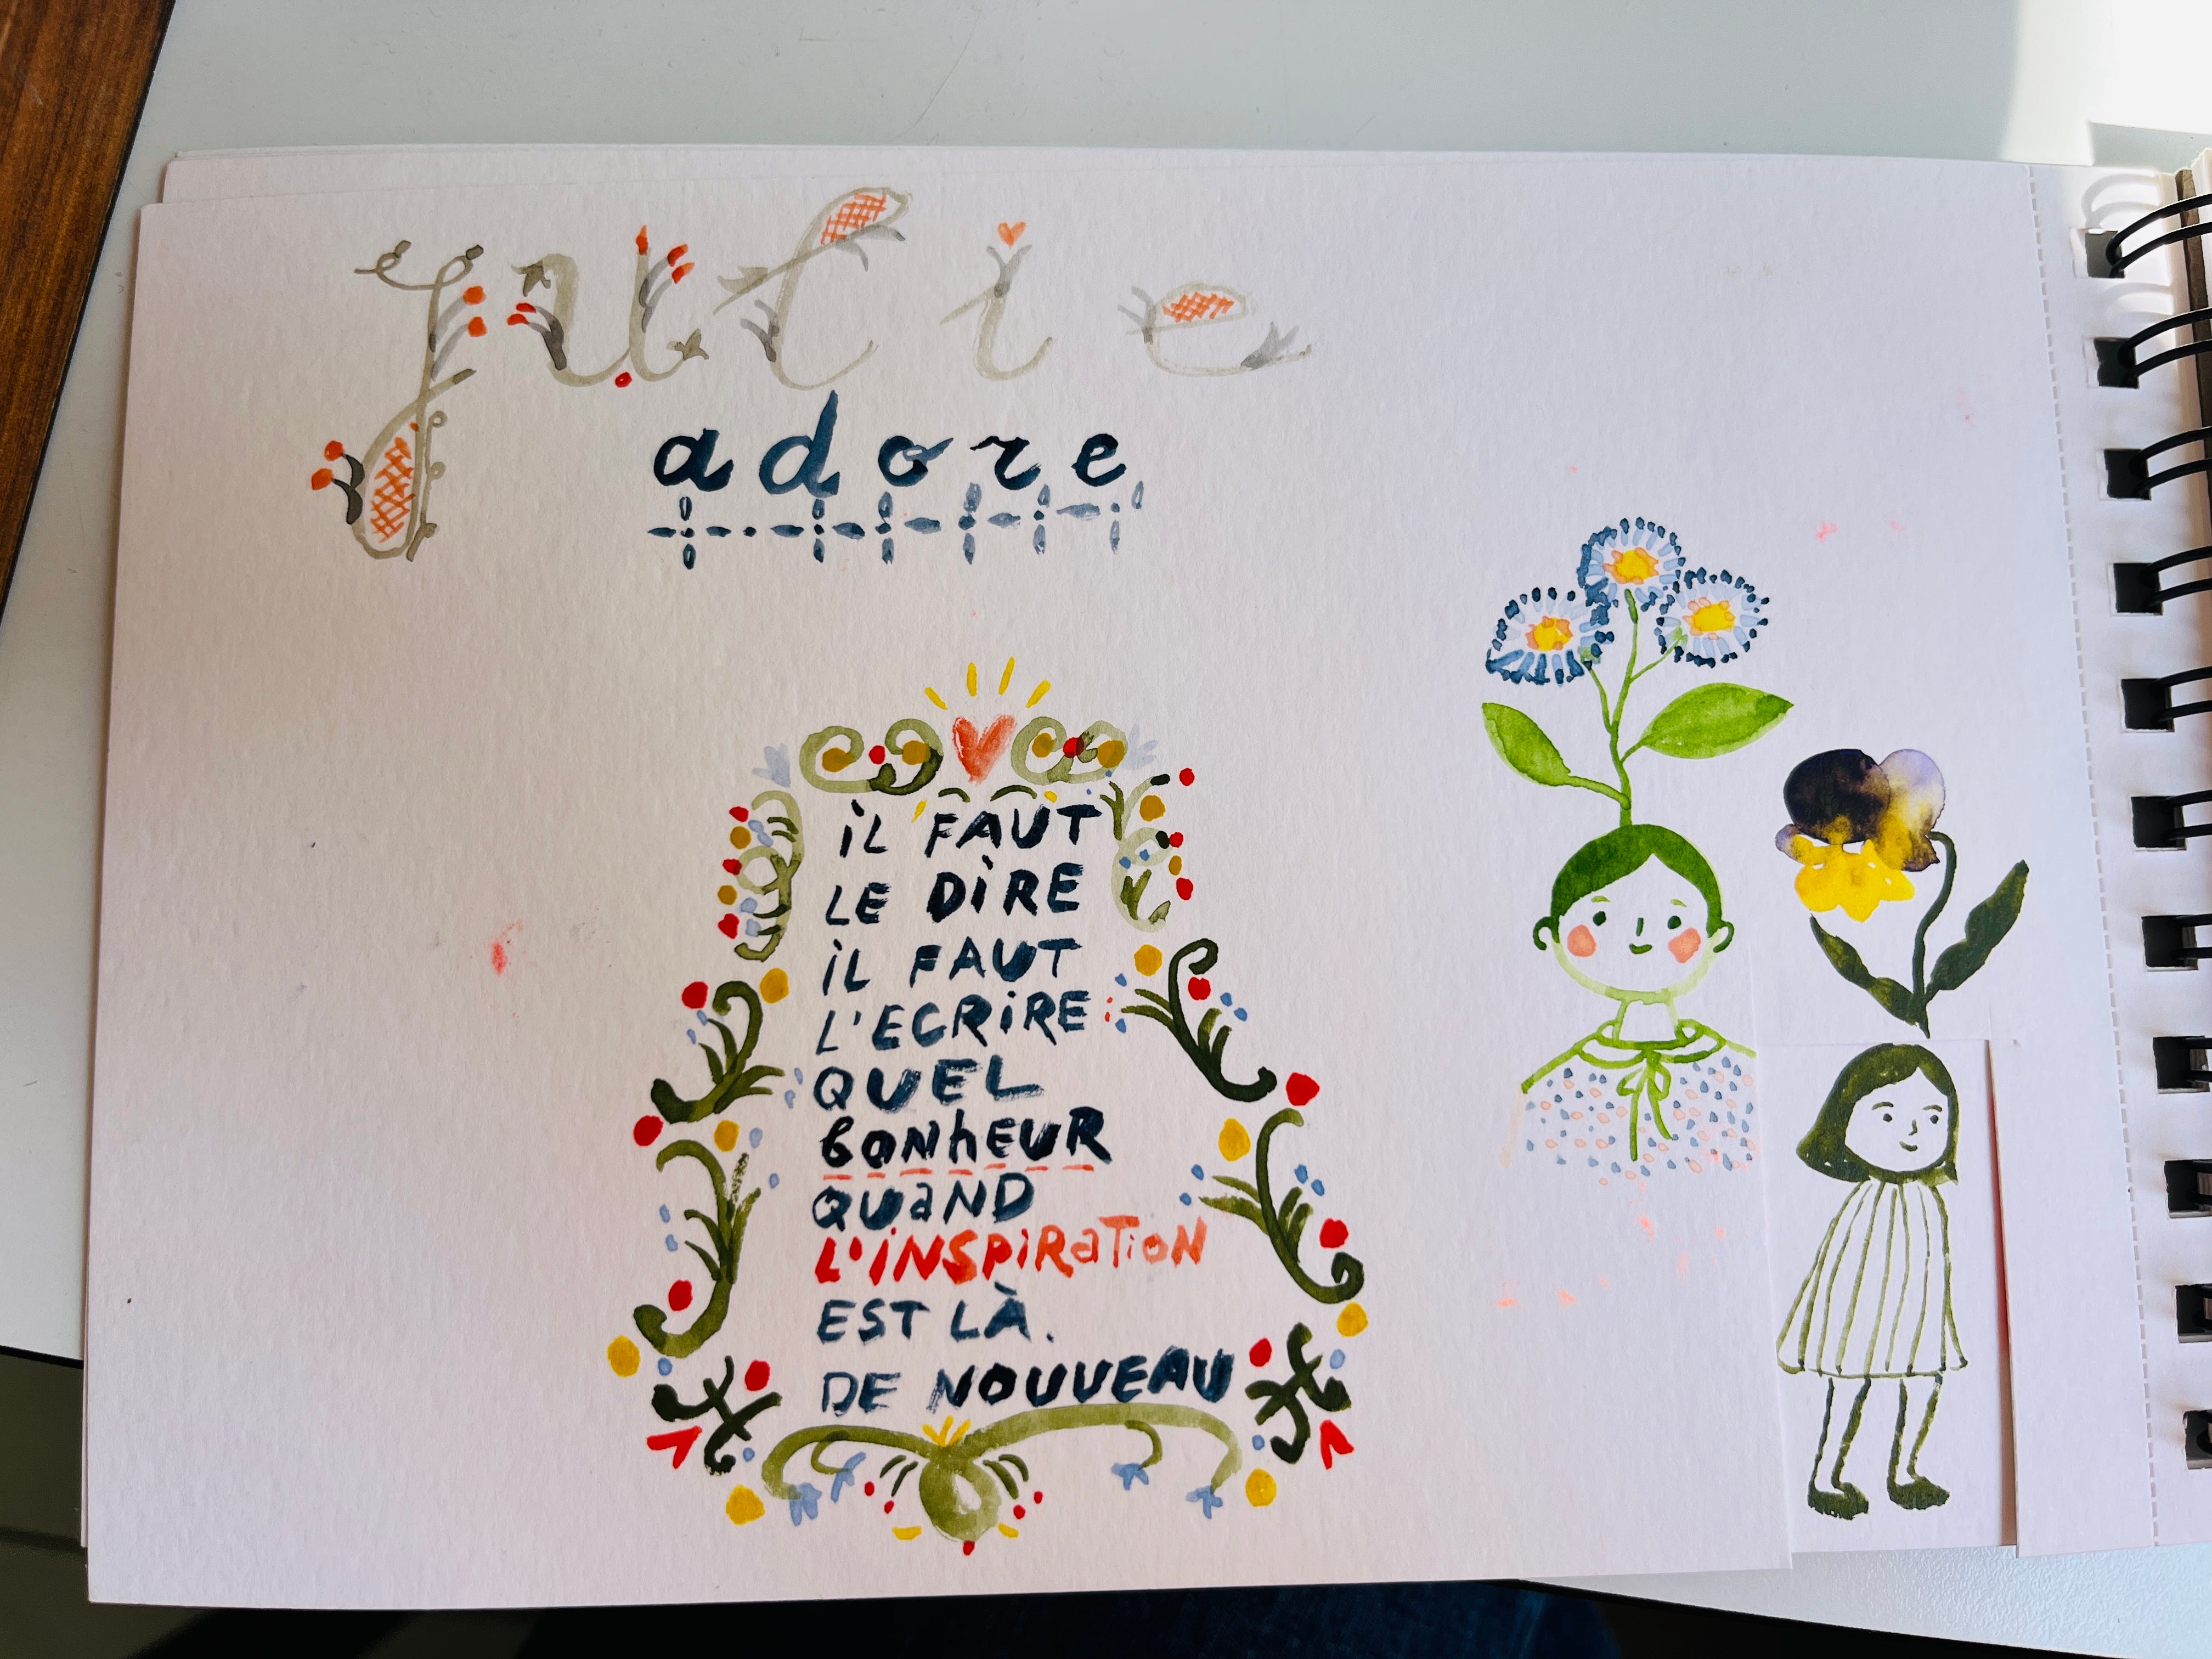 julie
adore
iL FAUT
LE DiRE
iL FAUT
L'ECRiRE
QUEL
bONhEUR
QUaND
L'iNSPiRaTioN
EST LÀ.
DE NOUVEAU